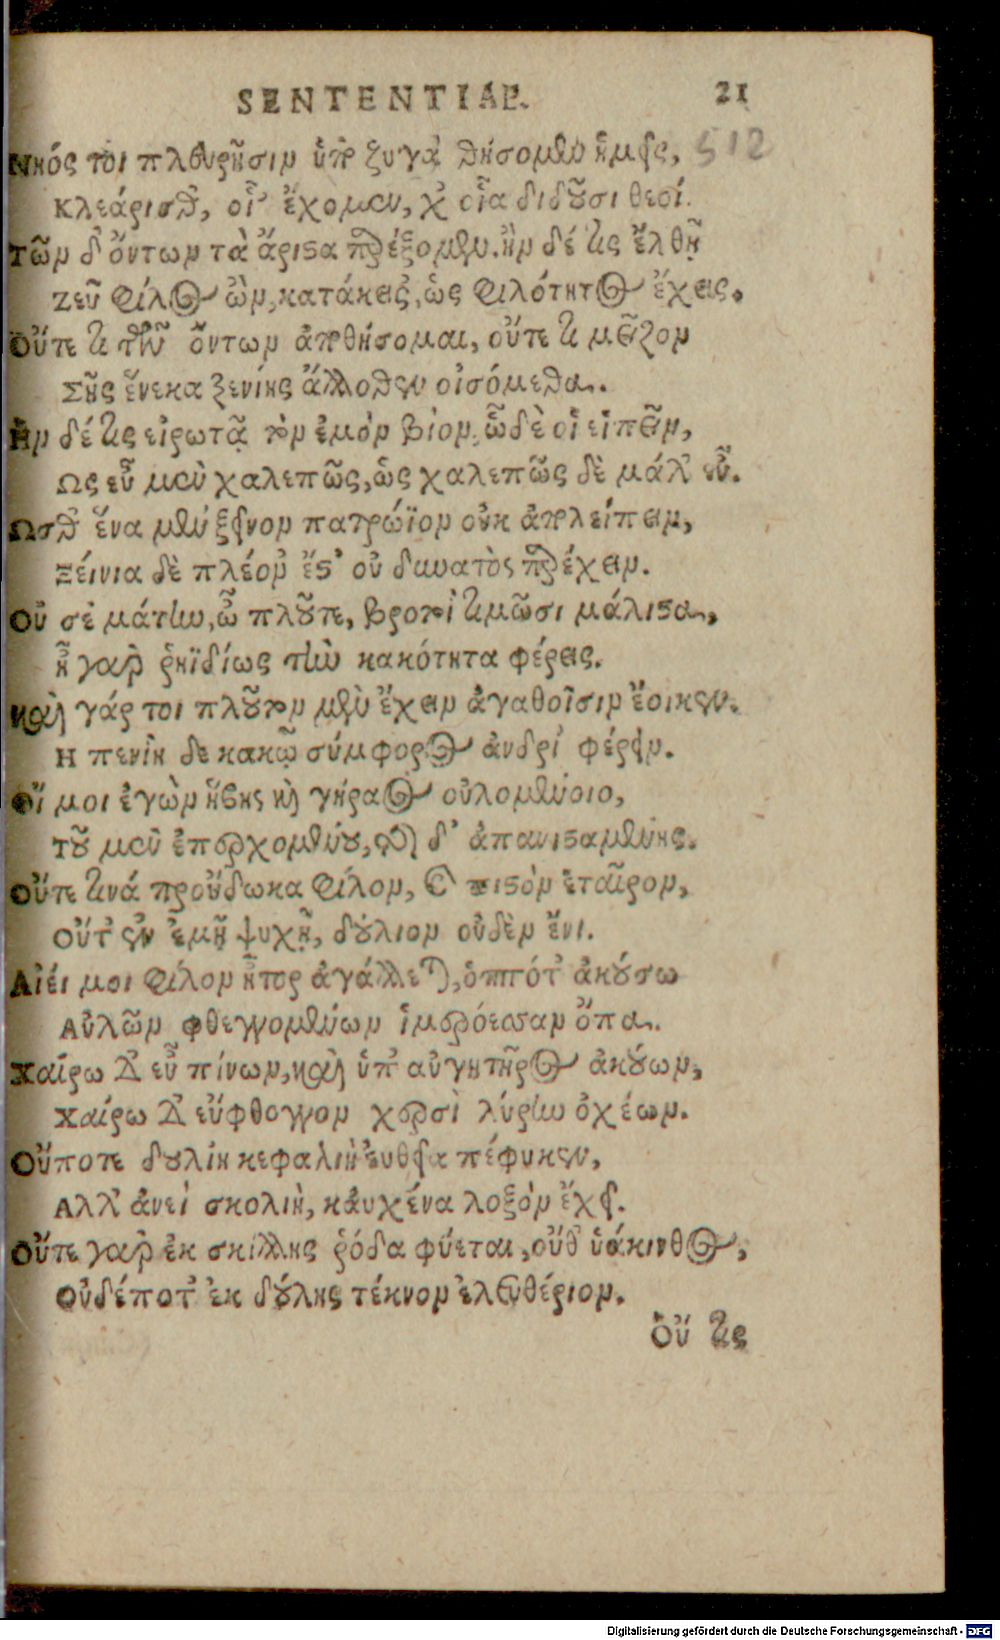 SENTENTIAE. 21
512
Νηός τοι πλευρῇσιν ὑπὸ ζυγὰ θήσομεν ἡμεῖς,
Κλεάρισθ', οἷ' ἔχομεν, χ' οἷα διδοῦσι θεοί.
Τῶν δ' ὄντων τὰ ἄριστα παρέξομεν. ἢν δέ τις ἔλθῃ
Ζεῦ φίλος ὢν, κατάκεισ', ὡς φιλότητος ἔχεις.
Οὔτε τι τῶν ὄντων ἀποθήσομαι, οὔτε τι μεῖζον
Σῆς ἕνεκα ξενίης ἄλλοθεν οἰσόμεθα.
Ἢν δέ τις εἰρωτᾷ τὸν ἐμὸν βίον, ὧδὲ οἱ εἰπεῖν,
Ως εὖ μὲν χαλεπῶς, ὡς χαλεπῶς δὲ μάλ' εὖ.
Ωσθ' ἕνα μὲν ξεῖνον πατρώϊον οὐκ ἀπολείπειν,
Ξείνια δὲ πλέον' ἔστ' οὐ δυνατὸς παρέχειν.
Οὔ σὲ μάτην, ὦ πλοῦτε, βροτοὶ τιμῶσι μάλιστα,
ἦ γὰρ ῥηϊδίως τὴν κακότητα φέρεις.
καὶ γάρ τοι πλοῦτον μὲν ἔχειν ἀγαθοῖσιν ἔοικεν.
Η πενίη δε κακῷ σύμφορος ἀνδρὶ φέρειν.
Οἴ μοι ἐγὼν ἥβης καὶ γήραος οὐλομένοιο,
Τοῦ μὲν ἐπερχομένου, τῆς δ' ἀπανισταμένης.
Οὔτε τινά προὔδωκα φίλον, καὶ πιστὸν ἑταῖρον,
Οὔτ' ἐν ἐμῇ ψυχῇ, δούλιον οὐδὲν ἔνι.
Αἰεί μοι φίλον ἦτορ ἀγάλλεται, ὁππότ' ἀκούσω
Αὐλῶν φθεγγομένων ἱμερόεσσαν ὄπα.
Χαίρω δ' εὖ πίνων, καὶ ὑπ' αὐγητῆρος ἀκούων,
Χαίρω δ' εὔφθογγον χερσὶ λύρην ὀχέων.
Οὔποτε δουλίη κεφαλὴ ἐυθεῖα πέφυκεν,
Αλλ' ἀνεὶ σκολιὴ, κἀυχένα λοξὸν ἔχει.
Οὔτε γὰρ ἐκ σκίλλης ῥόδα φύεται, οὔθ' ὑάκινθος,
Οὐδέποτ' ἐκ δούλης τέκνον ἐλευθέριον.
Οὔ τις
Digitalisierung gefördert durch die Deutsche Forschungsgemeinschaft - DFG